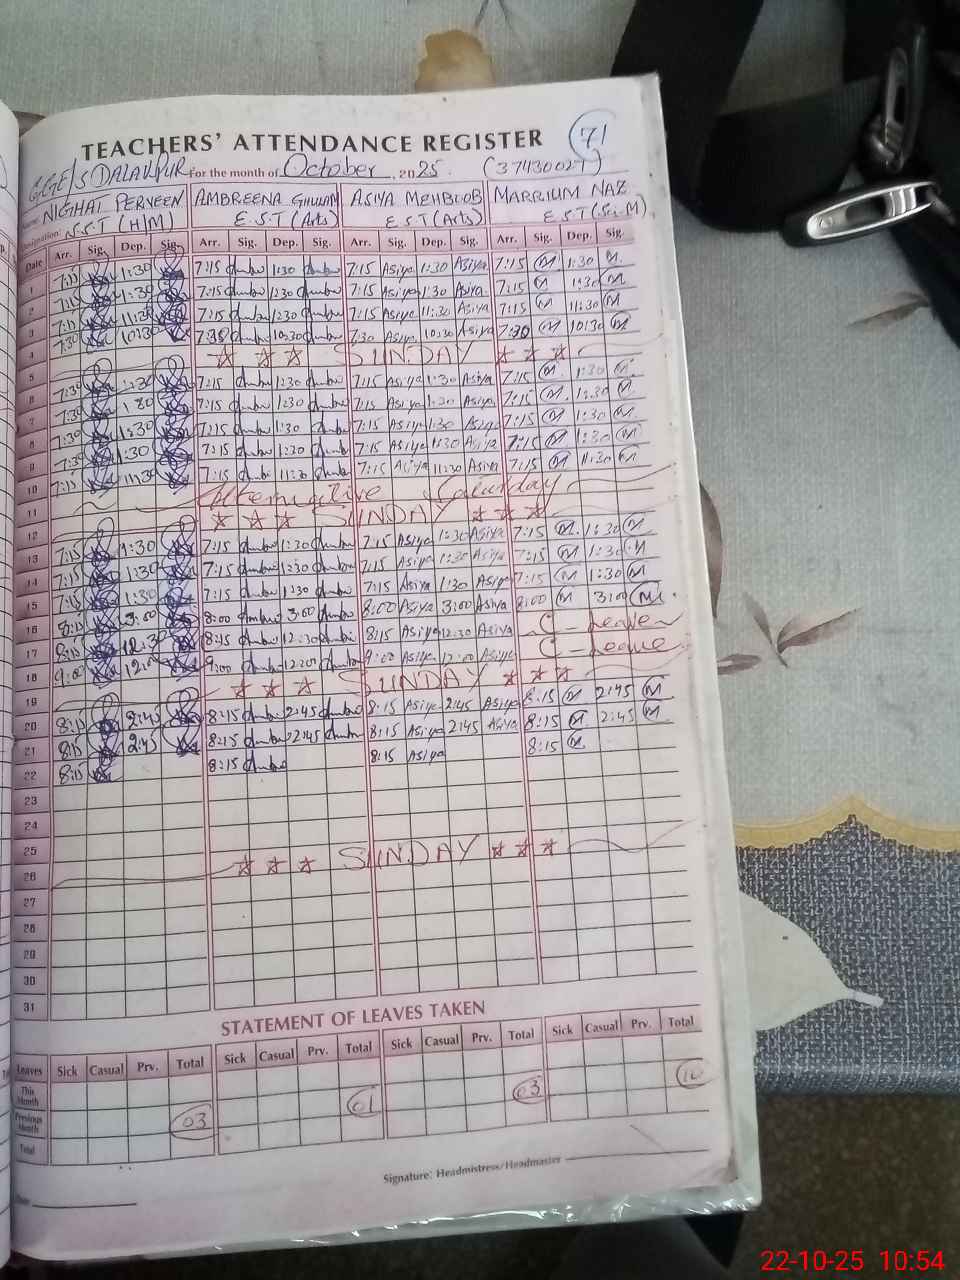 71
TEACHERS' ATTENDANCE REGISTER
GGE/S DALALPUR For the month of October, 2025. (37430027)
Name: NIGHAT PERVEEN AMBREENA GHULAM ASIYA MEHBOOB MARRIUM NAZ
Designation: S.S.T (H/M) E.S.T (Arts) E.S.T (Arts) E.S.T (Sc-M)
Date Arr. Sig. Dep. Sig. Arr. Sig. Dep. Sig. Arr. Sig. Dep. Sig. Arr. Sig. Dep. Sig.
1 7:15 1:30 7:15 1:30 7:15 Asiya 1:30 Asiya 7:15 M 1:30 M
2 7:15 1:30 7:15 1:30 7:15 Asiya 1:30 Asiya 7:15 M 1:30 M
3 7:15 11:30 7:15 7:15 Asiya 11:30 Asiya 7:15 M 11:30 M
4 7:30 10:30 7:30 10:30 7:30 Asiya 10:30 Asiya 7:30 M 10:30 M
5 SUNDAY
6 7:30 1:30 7:15 1:30 7:15 Asiya 1:30 Asiya 7:15 M 1:30 M
7 7:30 1:30 7:15 1:30 7:15 Asiya 1:30 Asiya 7:15 M 1:30 M
8 7:30 1:30 7:15 1:30 7:15 Asiya 1:30 Asiya 7:15 M 1:30 M
9 7:30 1:30 7:15 1:30 7:15 Asiya 1:30 Asiya 7:15 M 1:30 M
10 7:15 11:30 7:15 11:30 7:15 Asiya 11:30 Asiya 7:15 M 11:30 M
11 Alternative Saturday
12 SUNDAY
13 7:15 1:30 7:15 1:30 7:15 Asiya 1:30 Asiya 7:15 M 1:30 M
14 7:15 1:30 7:15 1:30 7:15 Asiya 1:30 Asiya 7:15 M 1:30 M
15 7:15 1:30 7:15 1:30 7:15 Asiya 1:30 Asiya 7:15 M 1:30 M
16 8:15 3:00 8:00 3:00 8:00 Asiya 3:00 Asiya 8:00 M 3:00 M
17 8:15 12:30 8:15 12:30 8:15 Asiya 12:30 Asiya C-Leave
18 9:00 12:00 9:00 12:00 9:00 Asiya 12:00 Asiya C-Leave
19 SUNDAY
20 8:15 2:45 8:15 2:45 8:15 Asiya 2:45 Asiya 8:15 M 2:45 M
21 8:15 2:45 8:15 2:45 8:15 Asiya 2:45 Asiya 8:15 M 2:45 M
22 8:15 8:15 8:15 Asiya 8:15 M
23
24
25
26 SUNDAY
27
28
29
30
31
STATEMENT OF LEAVES TAKEN
Leaves Sick Casual Prv. Total Sick Casual Prv. Total Sick Casual Prv. Total Sick Casual Prv. Total
This Month
Previous Month 03 01 03 10
Total
Signature: Headmistress/Headmaster
22-10-25 10:54